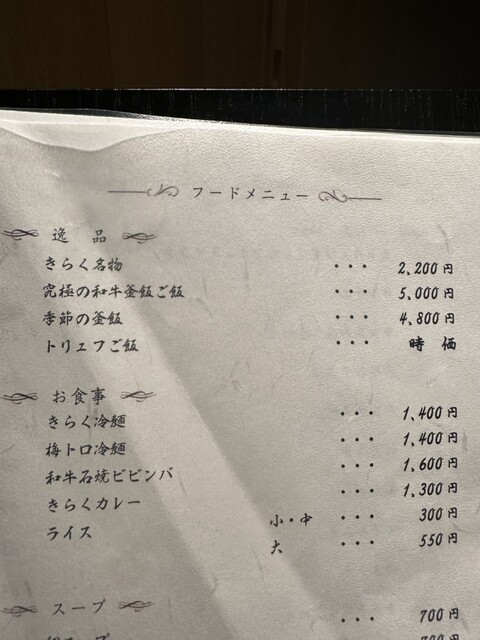 フードメニュー
逸品
きらく名物 ・・・ 2,200円
究極の和牛釜飯ご飯 ・・・ 5,000円
季節の釜飯 ・・・ 4,800円
トリュフご飯 ・・・ 時価
お食事
きらく冷麺 ・・・ 1,400円
梅トロ冷麺 ・・・ 1,400円
和牛石焼ビビンバ ・・・ 1,600円
きらくカレー ・・・ 1,300円
ライス 小・中 ・・・ 300円
大 ・・・ 550円
スープ
・・・ 700円